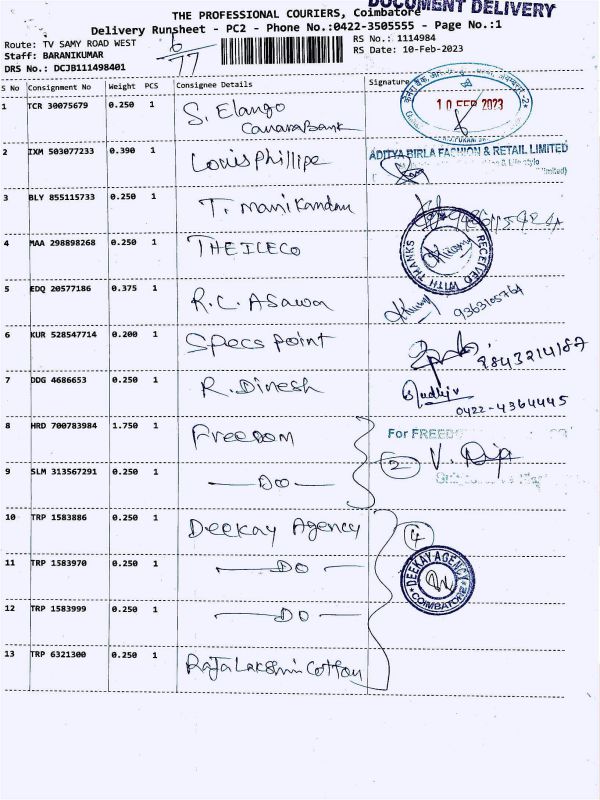 DOCUMENT DELIVERY
THE PROFESSIONAL COURIERS, Coimbatore
Delivery Runsheet - PC2 - Phone No.:0422-3505555 - Page No.:1
Route: TV SAMY ROAD WEST
6/77
RS No.: 1114984
Staff: BARANIKUMAR
RS Date: 10-Feb-2023
DRS No.: DCJB111498401
S No Consignment No Weight PCS Consignee Details Signature
1 TCR 30075679 0.250 1 S. Elango
Canara Bank
10 FEB 2023
2 IXM 503077233 0.390 1 Louis Phillipe
ADITYA BIRLA FASHION & RETAIL LIMITED
3 BLY 855115733 0.250 1 T. Manikandan
4 MAA 298898268 0.250 1 THEILECO
RECEIVED WITH THANKS
5 EDQ 20577186 0.375 1 R.C. Asawa
9363105764
6 KUR 528547714 0.200 1 Specs point
9843214187
7 DDG 4686653 0.250 1 R. Dinesh
0422-4364445
8 HRD 700783984 1.750 1 Freedom
For FREED
2 V. Dip
9 SLM 313567291 0.250 1 Do
10 TRP 1583886 0.250 1 Deekay Agency
4
11 TRP 1583970 0.250 1 DO
DEEKAY AGENCY
COIMBATORE
12 TRP 1583999 0.250 1 DO
13 TRP 6321300 0.250 1 RajaLakshmi Cotton